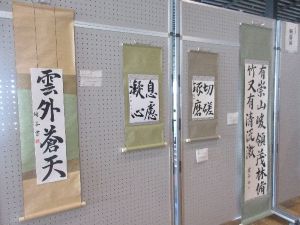 雲外蒼天
息慮
凝心
切磋
琢磨
有崇山峻領茂林脩
竹又有清流激